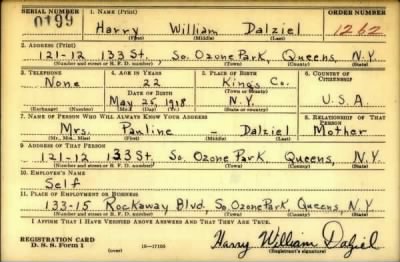 SERIAL NUMBER 1. NAME (Print) ORDER NUMBER
0199 Harry William Dalziel 1262
(First) (Middle) (Last)
2. ADDRESS (Print)
121-12 133 St., So. Ozone Park, Queens, N.Y.
(Number and street or R. F. D. number) (Town) (County) (State)
3. TELEPHONE 4. AGE IN YEARS 5. PLACE OF BIRTH 6. COUNTRY OF CITIZENSHIP
None 22 Kings Co.
DATE OF BIRTH (Town or county)
May 25, 1918 N.Y. U.S.A.
(Exchange) (Number) (Mo.) (Day) (Yr.) (State or country)
7. NAME OF PERSON WHO WILL ALWAYS KNOW YOUR ADDRESS 8. RELATIONSHIP OF THAT PERSON
Mrs. Pauline - Dalziel Mother
(Mr., Mrs., Miss) (First) (Middle) (Last)
9. ADDRESS OF THAT PERSON
121-12 133 St. So. Ozone Park, Queens, N.Y.
(Number and street or R. F. D. number) (Town) (County) (State)
10. EMPLOYER'S NAME
Self
11. PLACE OF EMPLOYMENT OR BUSINESS
133-15 Rockaway Blvd, So. Ozone Park, Queens, N.Y.
(Number and street or R. F. D. number) (Town) (County) (State)
I AFFIRM THAT I HAVE VERIFIED ABOVE ANSWERS AND THAT THEY ARE TRUE.
REGISTRATION CARD
D. S. S. Form 1 (over) 16-17105 Harry William Dalziel
(Registrant's signature)